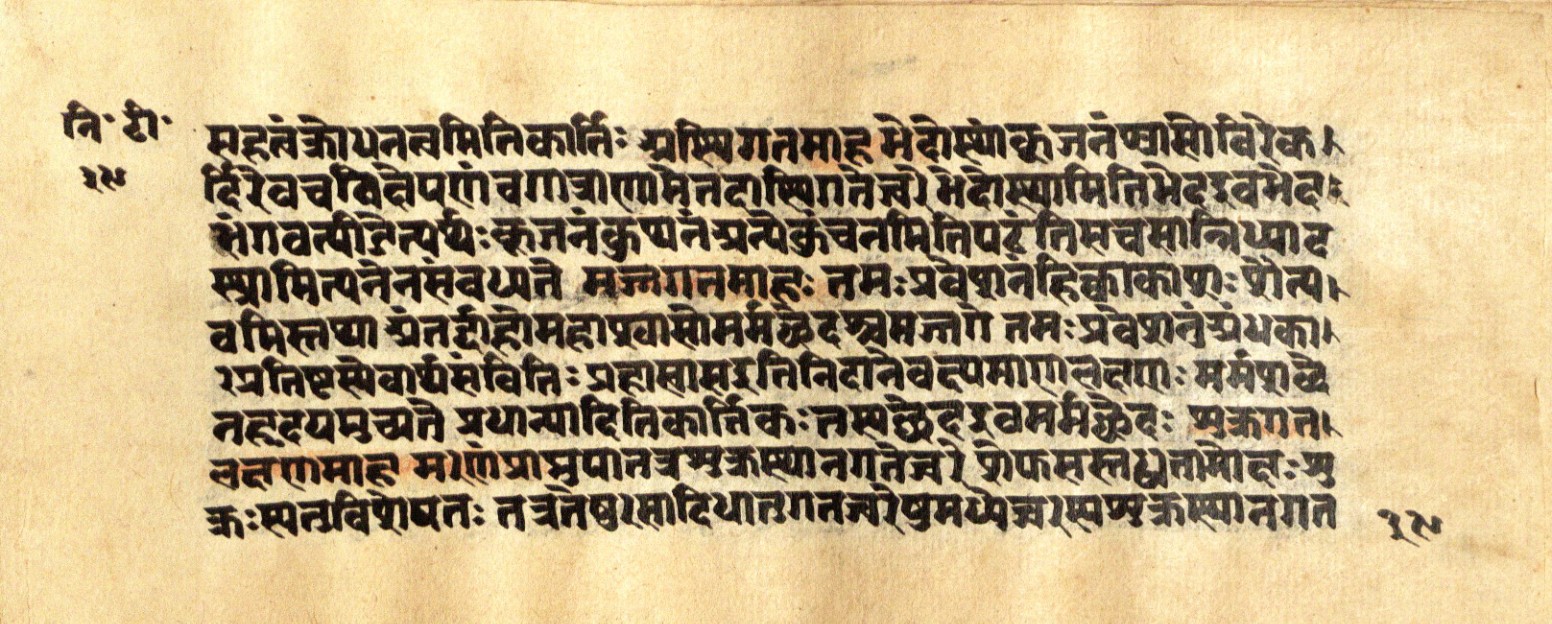 नि॰ टी॰
सहत्वंक्रोधनत्वमितिकार्तिः अस्थिगतमाह भेदोस्थ्नांकूजनंश्वासोविरेक।
र्दिरेवचविक्षेपणंचगात्राणामेतदास्थिगतेज्वरे भेदोस्थ्नामितिभेदइवभेदः
भंगवत्पीडेत्यर्थःकूजनंकुप्यनंअत्यैकुंचनमितिपठंतिसचसान्निध्याद
स्थ्नामित्यनेनसंवध्यते मज्जगतमाहः तमःप्रवेशनंहिक्काकाशः शैत्य।
वमिस्तथा अंतर्दाहोमहाश्वासोमर्मछेदश्चमज्जगे तमःप्रवेशनंअंधका।
रप्रतिष्टस्येवार्थसंवितिः महाश्वासइतिनिदानेवक्ष्यमाणलक्षणः मर्मशब्दे
नहृदयमुच्यते प्रधान्यादितिकार्त्तिकः तस्यछेदइवमर्मछेदः शुक्रगत।
लक्षणमाह मरणंप्राप्नुयातत्रशुक्रस्थानगतेज्वरे शेफसस्तब्धतामोक्षः शु
क्रःस्यतुविशेषतः तत्रतेषुरसादिधातुगतज्वरेषुमध्येज्वरस्यशुक्रस्थानगत